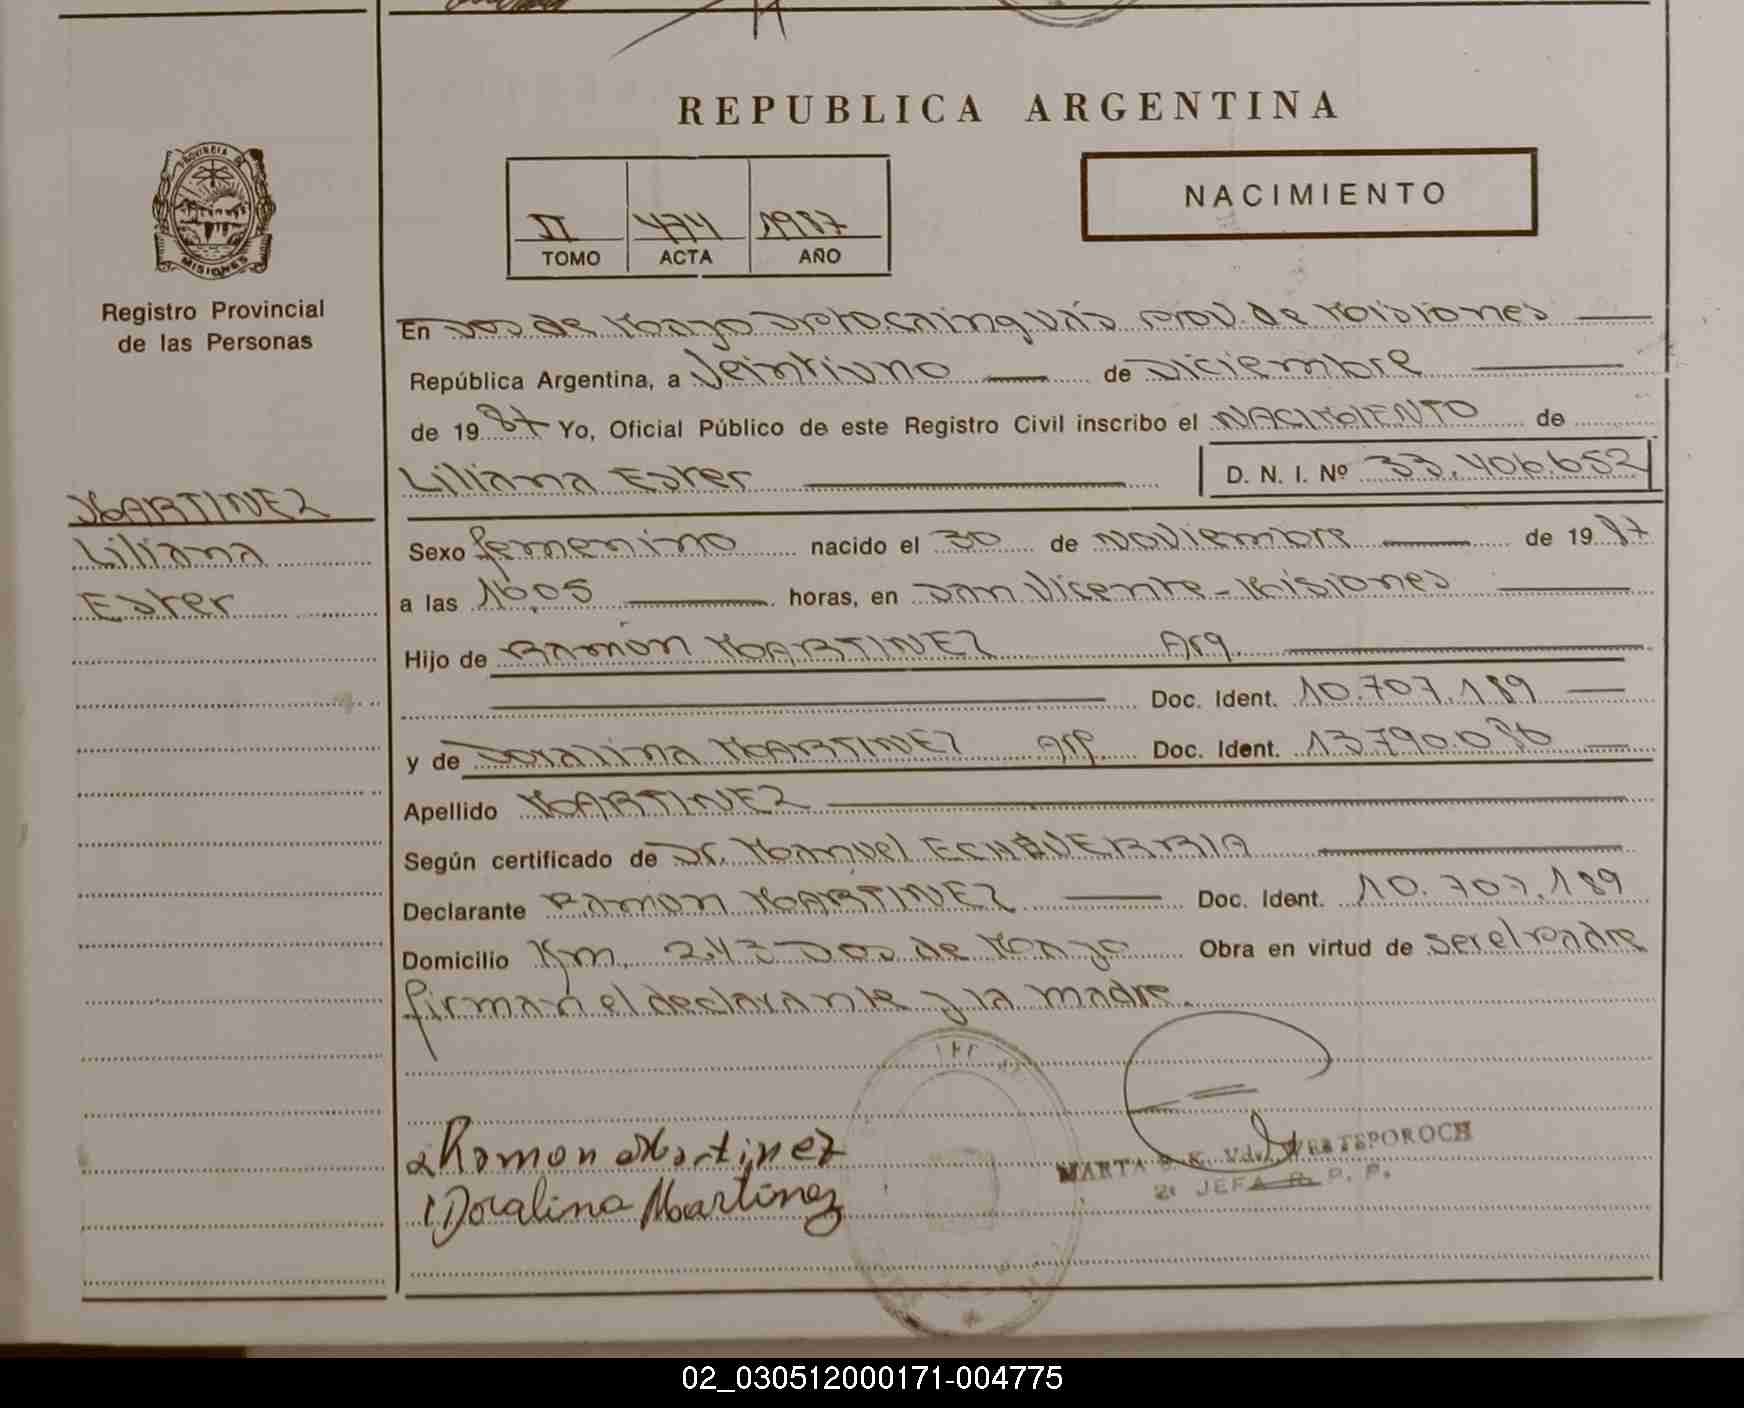 REPUBLICA ARGENTINA
PROVINCIA DE
MISIONES
Registro Provincial
de las Personas
II 474 1987
TOMO ACTA AÑO
NACIMIENTO
En Dos de Mayo Dpto. Cainguás Prov. de Misiones
República Argentina, a Veintiuno de Diciembre
de 1987 Yo, Oficial Público de este Registro Civil inscribo el NACIMIENTO de
Liliana Ester D. N. I. Nº 33.406.652
MARTINEZ
Liliana
Ester
Sexo femenino nacido el 30 de Noviembre de 1987
a las 16,05 horas, en San Vicente - Misiones
Hijo de Ramón MARTINEZ Arg.
Doc. Ident. 10.707.189
y de Doralina MARTINEZ Arg. Doc. Ident. 13.790.036
Apellido MARTINEZ
Según certificado de Dr. Manuel ECHEVERRIA
Declarante Ramón MARTINEZ Doc. Ident. 10.707.189
Domicilio Km. 243 Dos de Mayo Obra en virtud de ser el padre
firman el declarante y la madre.
Ramon Martinez
Doralina Martinez
MARTA Vda. WERTEPOROCH
JEFA R. P. P.
02_030512000171-004775